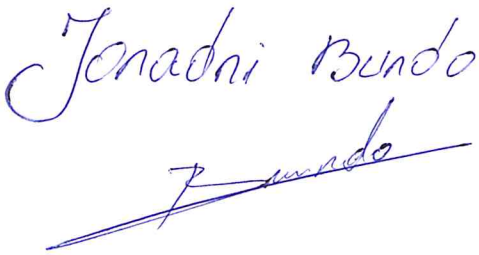 Jonadni Bundo
Bundo